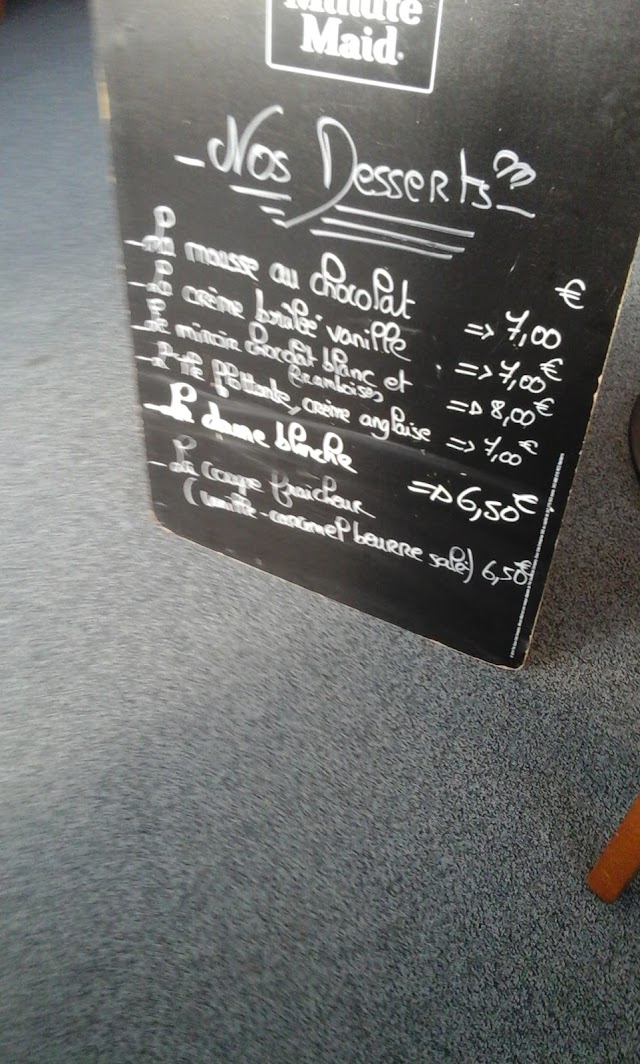 Minute
Maid
- Nos Desserts -
€
- La mousse au chocolat => 7,00
- La crème brûlée vanille => 7,00€
- Le miroir chocolat blanc et
framboises => 8,00€
- L'île flottante, crème anglaise => 7,00€
- La dame blanche => 6,50€
- La coupe fraicheur
(vanille - caramel beurre salé) 6,50€